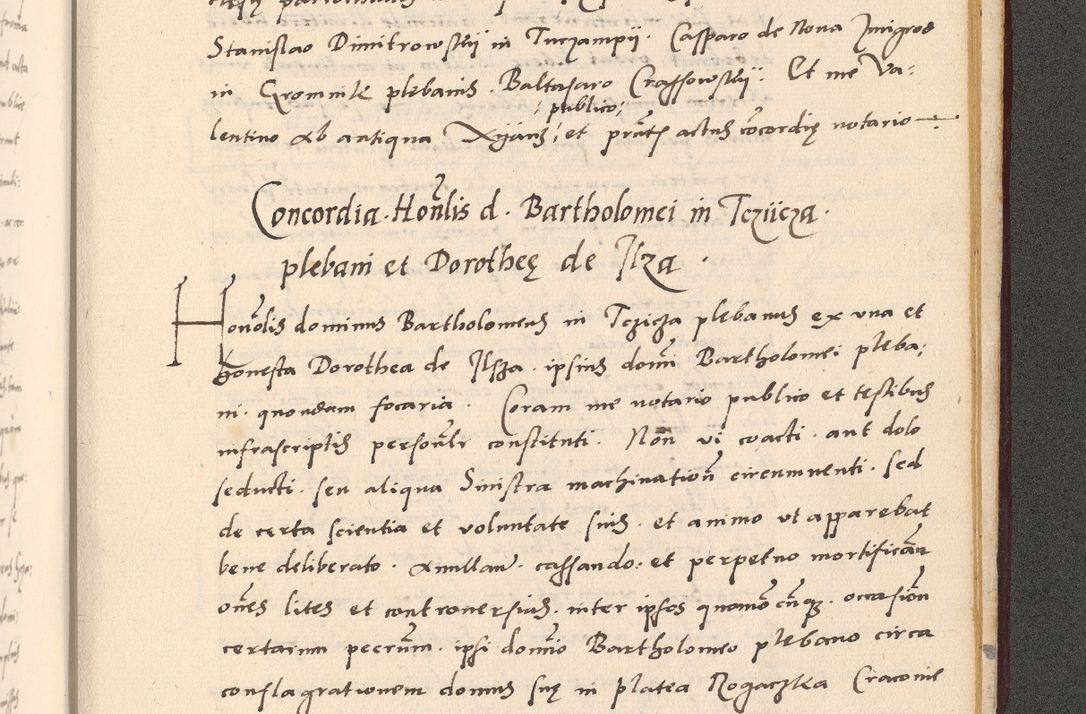 Stanislao Dimitrowskij in Turzampij. Casparo de Nova Zmigrod
in Gromnik plebanis. Baltasaro Crassowskij. Et me Va-
lentino ab antiqua publico et pnte actus cocordię notario
Concordia Honlis d. Bartholomei in Tcziicza
plebani et Dorotheę de Ilza.
Honolis dominus Bartholomeus in Tczicza plebanus ex una et
honesta Dorothea de Ilsza. ipsius domi Bartholomei pleba-
ni. quondam focaria. Coram me notario publico et testibus
infrascriptis personlr constituti. Non vi coacti. aut dolo
seducti. seu aliqua Sinistra machination circumventi. sed
de certa scientia et voluntate suis. et animo ut apparebat
bene deliberato. anullan. cassando. et perpetuo mortifican
oes lites et controversias. inter ipsos quomo cunq. occasion
certarum pecrum. ipsi domio Bartholomeo plebano circa
conflagrationem domus suę in platea Rogaczka Cracovie